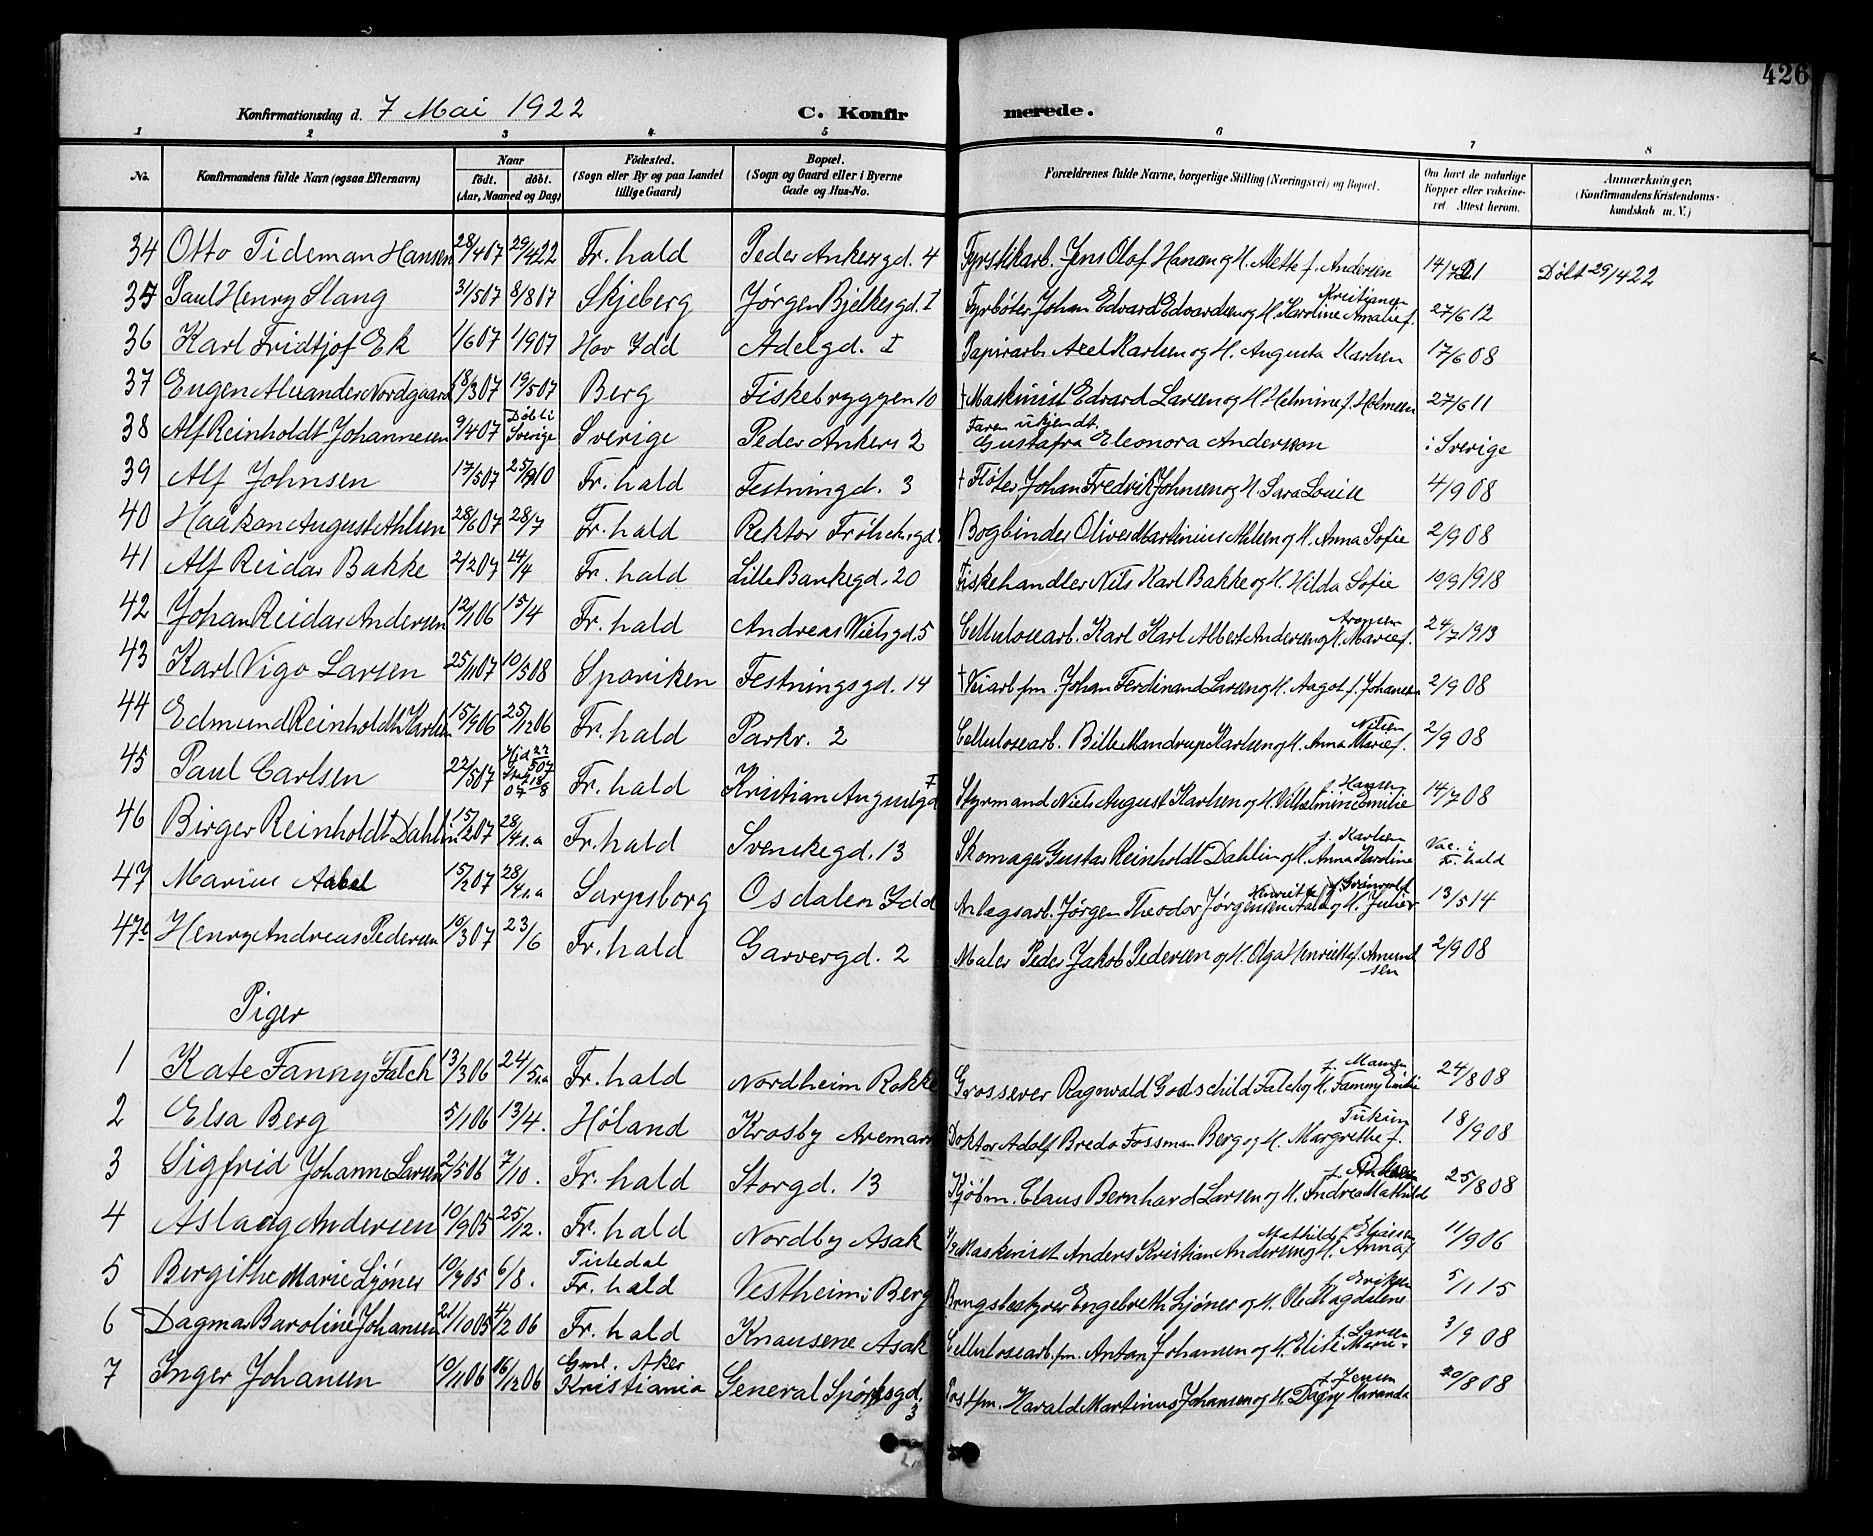 426
Konfirmationsdag d. 7 Mai 1922 C. Konfirmerede.
1 2 3 4 5 6 7 8
No. Konfirmandens fulde Navn (ogsaa Efternavn) Naar født. døbt. (Aar, Maaned og Dag) Födested. (Sogn eller By og paa Landet tillige Gaard) Bopæl. (Sogn og Gaard eller i Byerne Gade og Hus-No. Forældrenes fulde Navne, borgerlige Stilling (Næringsvei) og Bopæl. Om havt de naturlige Kopper eller vakcineret Attest herom. Anmærkninger. (Konfirmandens Kristendomskundskab m. V.)
34 Otto Tideman Hansen 28/4 07 29/4 22 Fr. hald Peder Ankersgd. 4 Fyrstikarb. Jens Olof Hansen og H. Mette f. Andersen 14/7 21 Döbt 29/4 22
35 Paul Henry Slang 31/5 07 8/8 07 Skjeberg Jørgen Bjelkesgd. I Fyrbøter Johan Edvard Edvardsen og H. Karoline Amalie f. Kristiansen 27/6 12
36 Karl Fridtjof Ek 1/6 07 1/9 07 Hov Idd Adelgd. I Papirarb. Axel Karlsen og H. Augusta Karlsen 17/6 08
37 Eugen Alexander Nordgaard 18/3 07 19/5 07 Berg Fiskebryggen 10 † Maskinist Edvard Larsen og H. Helmine f. Holmsen 27/6 11
38 Alf Reinholdt Johannesen 9/4 07 Döbt i Sverige Sverige Peder Ankers 2 Faren ukjendt. Gustafra Eleonora Andersson i Sverige
39 Alf Johnsen 17/5 07 25/9 10 Fr. hald Festningd. 3 † Fløter Johan Fredrik Johnsen og H. Sara Louise 4/9 08
40 Haakon August Athlsen 28/6 07 28/7 Fr. hald Rektor Frölichsgd. Bogbinder Oliver Martinius Ahlsen og H. Anna Sofie 2/9 08
41 Alf Reidar Bakke 2/2 07 14/4 Fr. hald Lille Bankegd. 20 Fiskehandler Nils Karl Bakke og H. Hilda Sofie 10/9 1918
42 Johan Reidar Andersen 12/1 06 15/4 Fr. hald Andreas Wielsgd. 5 Cellulosearb. Karl Karl Albert Andersen og H. Marie f. Aronsen 24/7 1913
43 Karl Vigo Larsen 25/11 07 10/5 08 Sponviken Festningsgd. 14 † Veiarb. fm. Johan Ferdinand Larsen og H. Aagot f. Johansen 2/9 08
44 Edmund Reinholdt Karlsen 15/9 06 25/12 06 Fr. hald Parkv. 2 Cellulosearb. Bille Mandrup Karlsen og H. Anna Marie f. Nilsen 2/9 08
45 Paul Carlsen 22/5 07 Hjd 22 5 07 18/8 07 Fr. hald Kristian Augustgd I Styrmand Niels August Karlsen og H. Vilhelmine Emilie f. Hansen 14/7 08
46 Birger Reinholdt Dahlin 15/2 07 28/4 s.a Fr. hald Svenskegd. 13 Skomager Gustav Reinholdt Dahlin og H. Anna Karoline f. Karlsen Vac. i Fr. hald
47 Marius Aabel 15/2 07 28/4 s.a Sarpsborg Osdalen Idd Anlægsarb. Jørgen Theodor Jørgensen Aabel og H. Julie Henriette f. Grönvold 13/5 14
47b Henry Andreas Pedersen 10/3 07 23/6 Fr. hald Garvergd. 2 Maler Peder Jakob Pedersen og H. Olga Henriette f. Amundsen 2/9 08
Piger
1 Kate Fanny Falch 13/3 06 24/5 s.a Fr. hald Nordheim Rokke Grosserer Ragnvald Godschild Falch og H. Fanny Emilie 24/8 08
2 Elsa Berg 5/1 06 13/4. Høland Krosby Aremark Doktor Adolf Bredo Fossman Berg og H. Margrethe f. 18/9 08
3 Sigfrid Johanne Larsen 2/5 06 7/10. Fr. hald Storgd. 13 Kjøbm. Claus Bernhard Larsen og H. Andrea Mathild 25/8 08
4 Aslaug Andersen 10/9 05 25/12. Fr. hald Nordby Asak Maskinist Anders Kristian Andersen og H. Anna Mathilde f. Eliassen 11/9 06
5 Bergithe Marie Sjöner 10/7 05 6/8. Tistedal Fr. hald Vestheim i Berg Brugsbestyrer Engebreth Sjöner og H. Ole Magdalene f. Eriksen 5/1 15
6 Dagmar Baroline Johansen 21/10 05 4/2 06 Fr. hald Knausene Asak Cellulosearb. fm. Anton Johansen og H. Elise Marie f. Larsen 3/9 08
7 Inger Johansen 10/11 06 16/12 06 Gml. Aker Kristiania General Spörksgd. 3 Post fm. Harald Martinus Johansen og H. Dagny Maranda f. Jensen 20/8 08